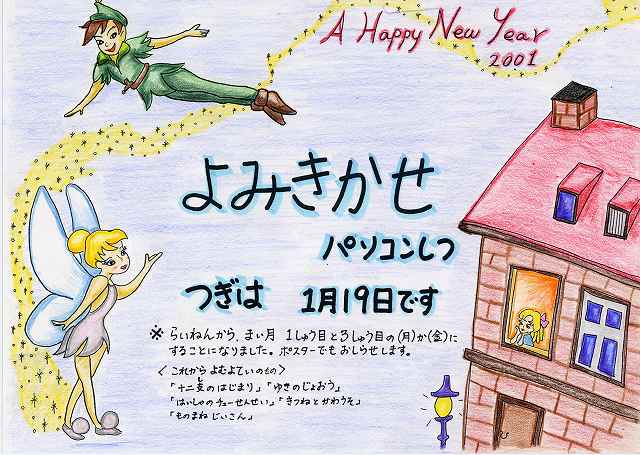 A Happy New Year
2001
よみきかせ
パソコンしつ
つぎは 1月19日です
※ らいねんから、まい月 1しゅう目と3しゅう目の(月)か(金)に
することになりました。ポスターでもおしらせします。
〈これからよむよていのもの〉
「十二支のはじまり」「ゆきのじょおう」
「はいしゃのチューせんせい」「きつねとかわうそ」
「ものまねじいさん」